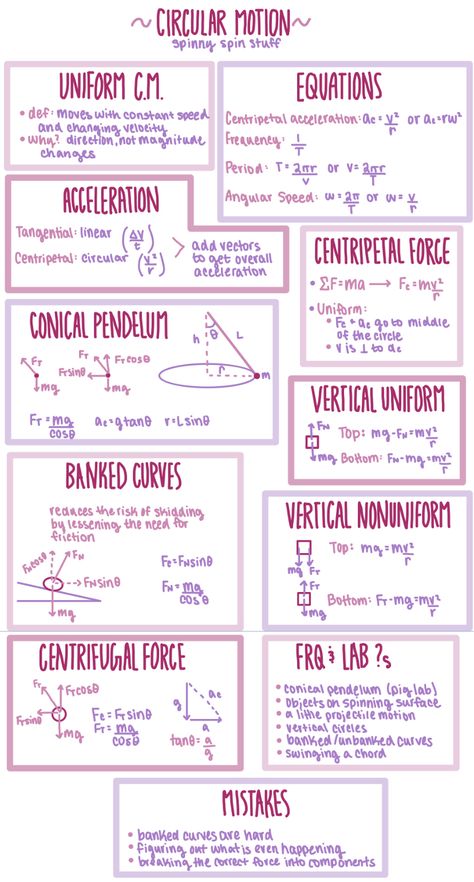 ~ CIRCULAR MOTION ~
spinny spin stuff
UNIFORM C.M.
• def: moves with constant speed
and changing velocity
• why? direction, not magnitude
changes
EQUATIONS
Centripetal acceleration: ac = v²/r or ac = rω²
Frequency: 1/T
Period: T = 2πr/v or v = 2πr/T
Angular Speed: ω = 2π/T or ω = v/r
ACCELERATION
Tangential: linear (Δv/t)
Centripetal: circular (v²/r)
> add vectors
to get overall
acceleration
CENTRIPETAL FORCE
• ΣF = ma → Fc = mv²/r
• Uniform:
• Fc + ac go to middle
of the circle
• v is ⊥ to ac
CONICAL PENDELUM
FT
mg
FT
FTcosθ
FTsinθ
mg
h
θ
L
r
m
FT = mg/cosθ ac = gtanθ r = Lsinθ
VERTICAL UNIFORM
FN
mg
Top: mg - FN = mv²/r
Bottom: FN - mg = mv²/r
BANKED CURVES
reduces the risk of skidding
by lessening the need for
friction
FNcosθ
FN
FNsinθ
mg
Fc = FNsinθ
FN = mg/cosθ
VERTICAL NONUNIFORM
mg FT
Top: mg = mv²/r
FT
mg
Bottom: FT - mg = mv²/r
CENTRIFUGAL FORCE
FT
FTcosθ
FTsinθ
mg
Fc = FTsinθ
FT = mg/cosθ
g
ac
a
tanθ = a/g
FRQ & LAB ?s
• conical pendelum (pig lab)
• objects on spinning surface
• a little projectile motion
• vertical circles
• banked/unbanked curves
• swinging a chord
MISTAKES
• banked curves are hard
• figuring out what is even happening
• breaking the correct force into components